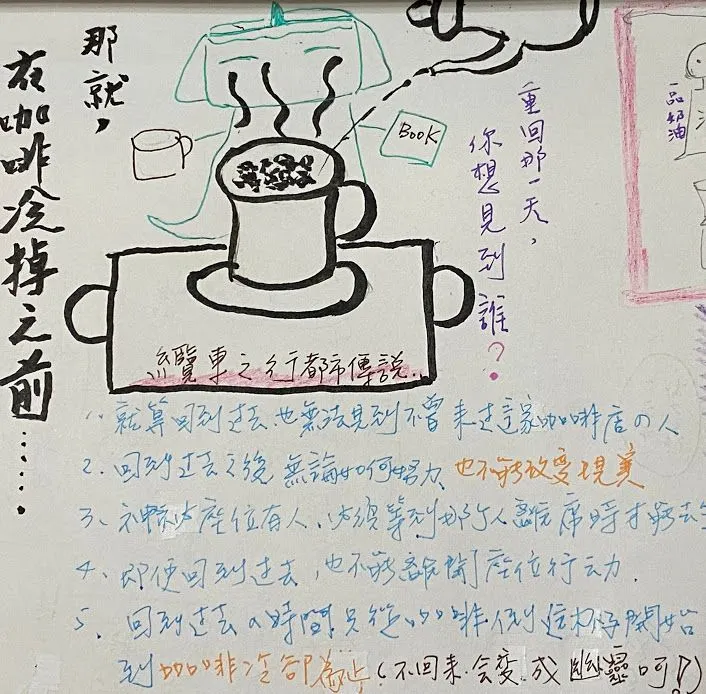 那就，
在咖啡冷掉之前......
BOOK
重回那一天，
你想見到誰？
奶油
纜車之行都市傳說..
1、就算回到过去也無法見到不曾来过這家咖啡店の人
2、回到过去之後 無論如何努力、也不能改变現実
3、座位有人，必須等到那个人離席時才能去
4、即便回到过去，也不能離開座位行动.
5、回到过去の時間只從咖啡倒到這杯子開始
到咖啡冷卻為止(不回来会变成幽靈呵!)